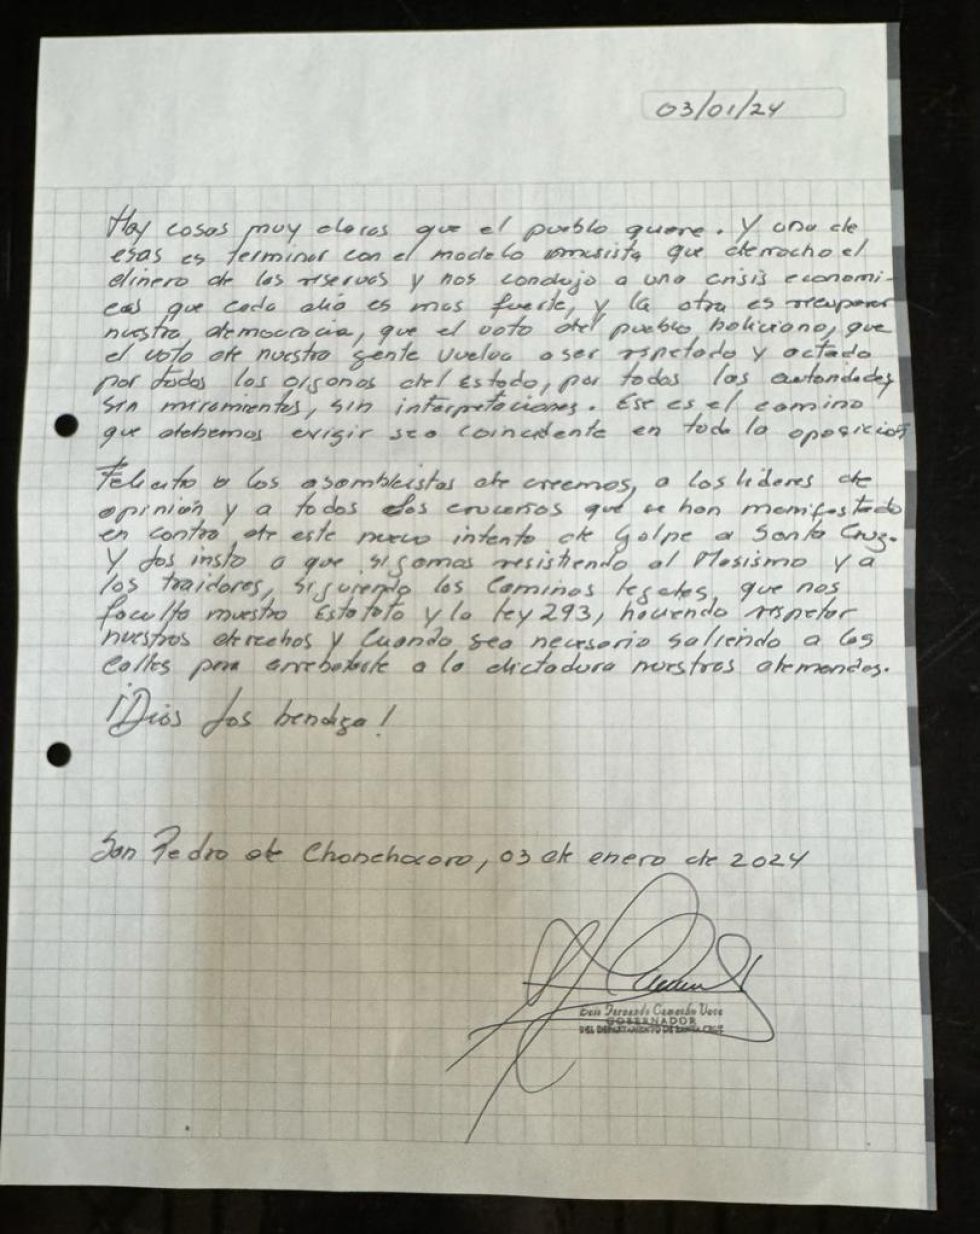 03/01/24
Hay cosas muy claras que el pueblo quiere. Y una de
esas es terminar con el modelo masista que derrocho el
dinero de las reservas y nos condujo a una crisis economi-
cas que cada año es mas fuerte, y la otra es recuperar
nuestra democracia, que el voto del pueblo boliviano, que
el voto de nuestra gente vuelva a ser respetado y acatado
por todos los organos del Estado, por todas las autoridades
sin miramientos, sin interpretaciones. Ese es el camino
que debemos exigir sea coincidente en toda la oposición
Felicito a los asambleistas de creemos, a los lideres de
opinión y a todos los cruceños que se han manifestado
en contra de este nuevo intento de Golpe a Santa Cruz.
Y los insto a que sigamos resistiendo al Masismo y a
los traidores, siguiendo los Caminos legales, que nos
faculta nuestro Estatuto y la ley 293, haciendo respetar
nuestros derechos y cuando sea necesario saliendo a las
calles para arrebatarle a la dictadura nuestras demandas.
¡Dios los bendiga!
San Pedro de Chonchocoro, 03 de enero de 2024
Luis Fernando Camacho Vaca
GOBERNADOR
DEL DEPARTAMENTO DE SANTA CRUZ